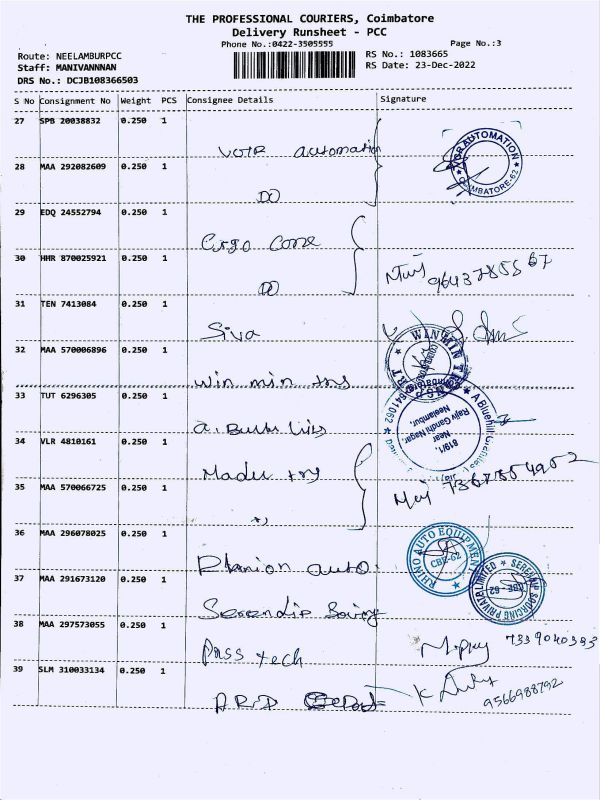 THE PROFESSIONAL COURIERS, Coimbatore
Delivery Runsheet - PCC
Phone No.:0422-3505555
Page No.:3
Route: NEELAMBURPCC
RS No.: 1083665
Staff: MANIVANNNAN
RS Date: 23-Dec-2022
DRS No.: DCJB108366503
S No Consignment No Weight PCS Consignee Details Signature
27 SPB 20038832 0.250 1
automation
28 MAA 292082609 0.250 1
DO
AUTOMATION
COIMBATORE-62
29 EDQ 24552794 0.250 1
30 HHR 870025921 0.250 1
DO
31 TEN 7413084 0.250 1
Siva
32 MAA 570006896 0.250 1
win min
WIN MIN
33 TUT 6296305 0.250 1
641062
819/1,
Near
Rajiv Gandhi Nagar,
Neelambur,
34 VLR 4810161 0.250 1
35 MAA 570066725 0.250 1
36 MAA 296078025 0.250 1
auto
RHINO AUTO EQUIPMENT
CBE-62
37 MAA 291673120 0.250 1
Serendip
SERENDIP SOURCING PRIVATE LIMITED
CBE - 62
38 MAA 297573055 0.250 1
Pass tech
7339040393
39 SLM 310033134 0.250 1
9566988792